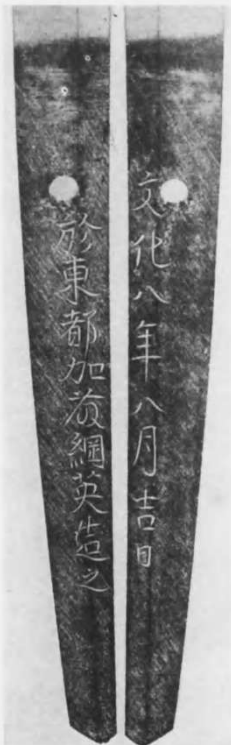 文化八年八月吉日
於東都加藤綱英造之